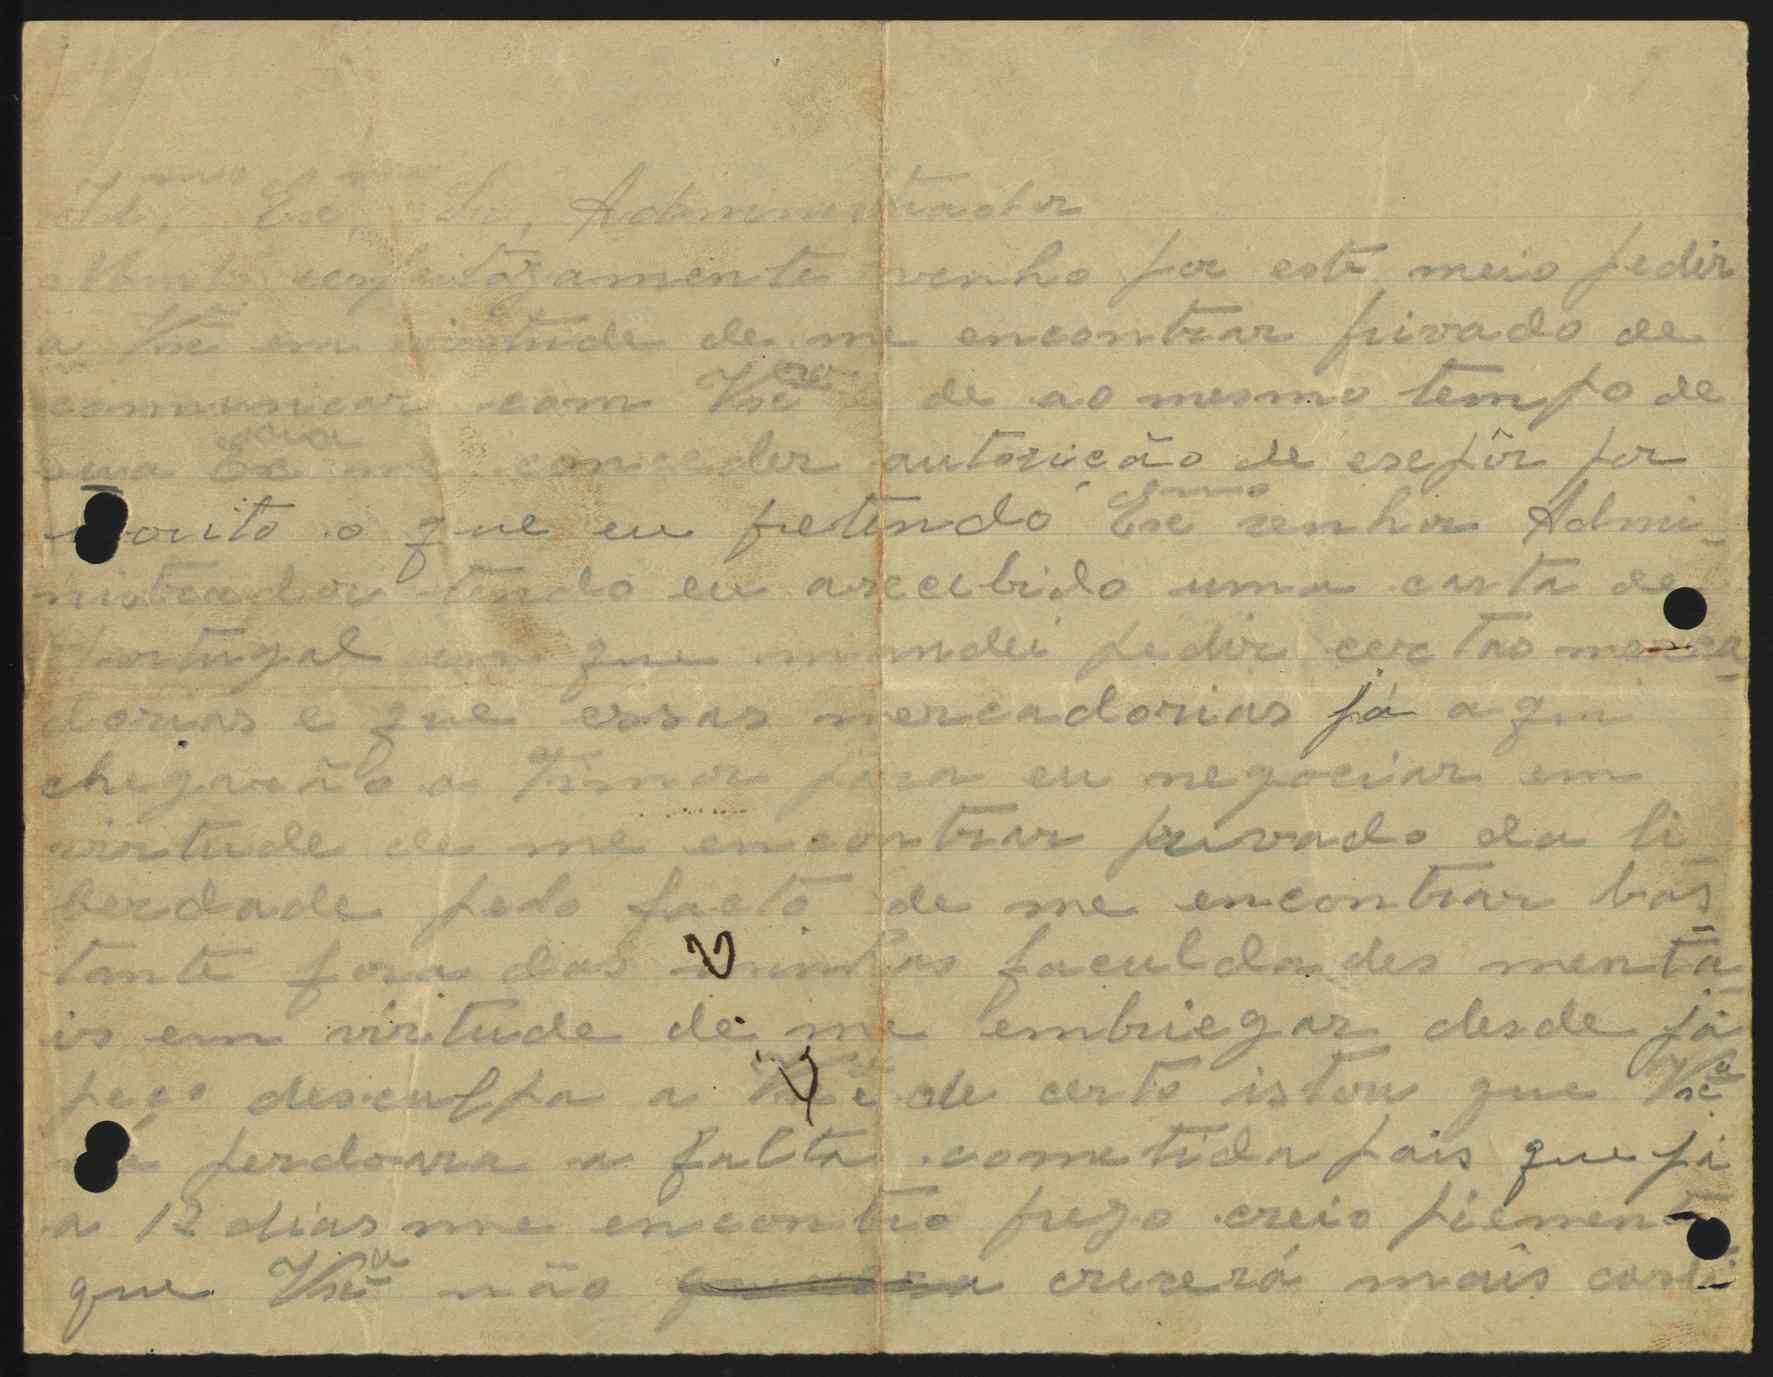 Il.mo Exc.mo Sr. Administrador
Muito respeitozamente venho por este meio pedir
a Vxcia em virtude de me encontrar privado de
comunicar com Vxcia e de ao mesmo tempo de
sua Excia me conceder autorição de esepôr por
escrito o que eu pretendo Exc.mo senhor Admi-
nistrador tendo eu arecebido uma carta de
Portugal em que mandei pedir certas merca-
dorias e que essas mercadorias já aqui
chegarão a Timor para eu negociar em
virtude de me encontrar privado da li
berdade pelo facto de me encontrar bas-
tante fora das minhas faculdades menta-
is em virtude de me embriegar desde já
peço desculpa a Vxcia e de certo istou que Vxcia
me perdoara a falta cometida pois que já
a 12 dias me encontro prezo creio piement
que Vxcia não crexerá mais